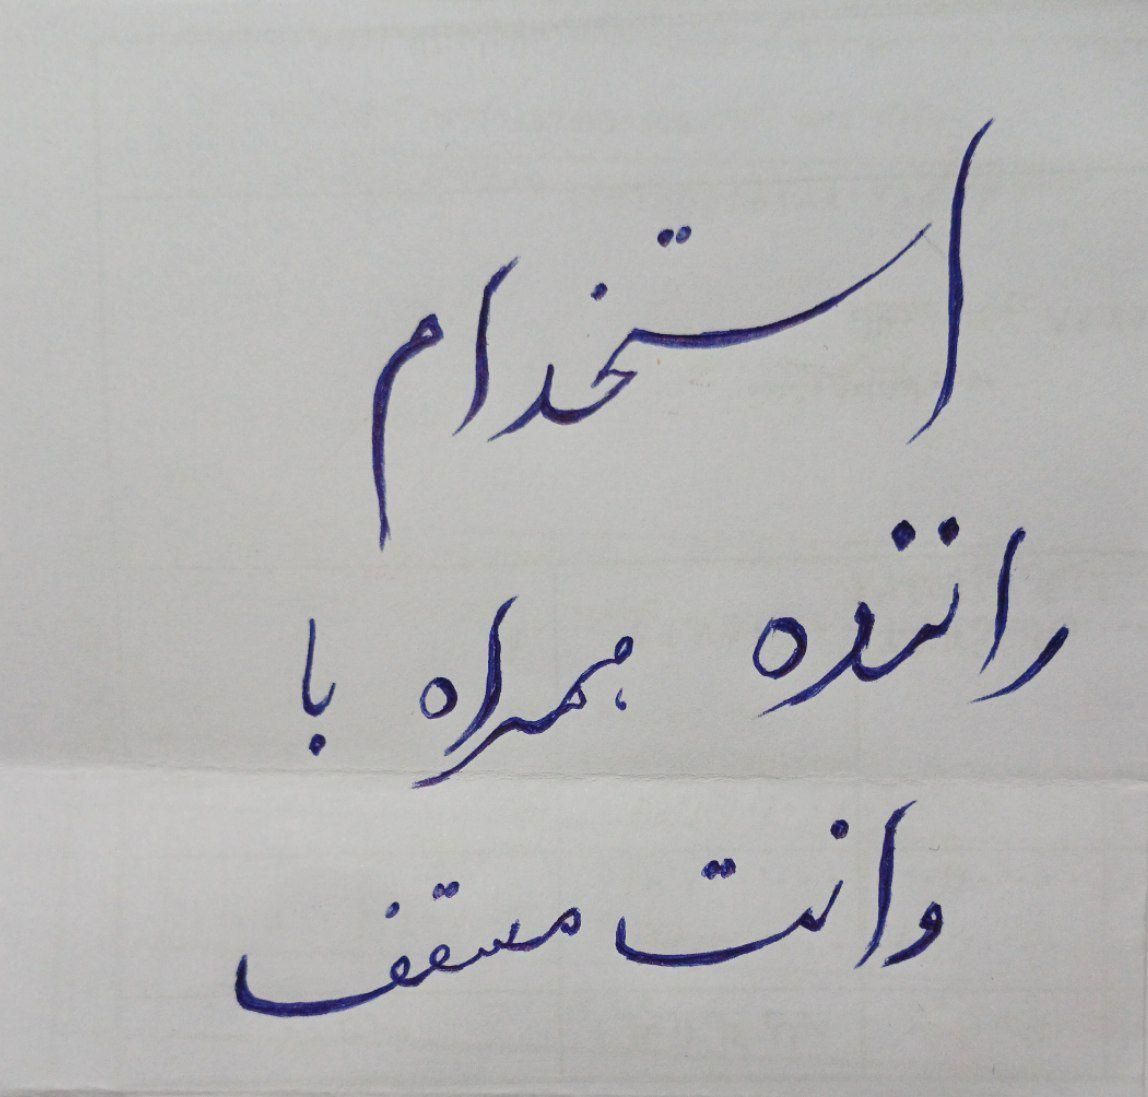 استخدام
راننده همراه با
وانت مسقف